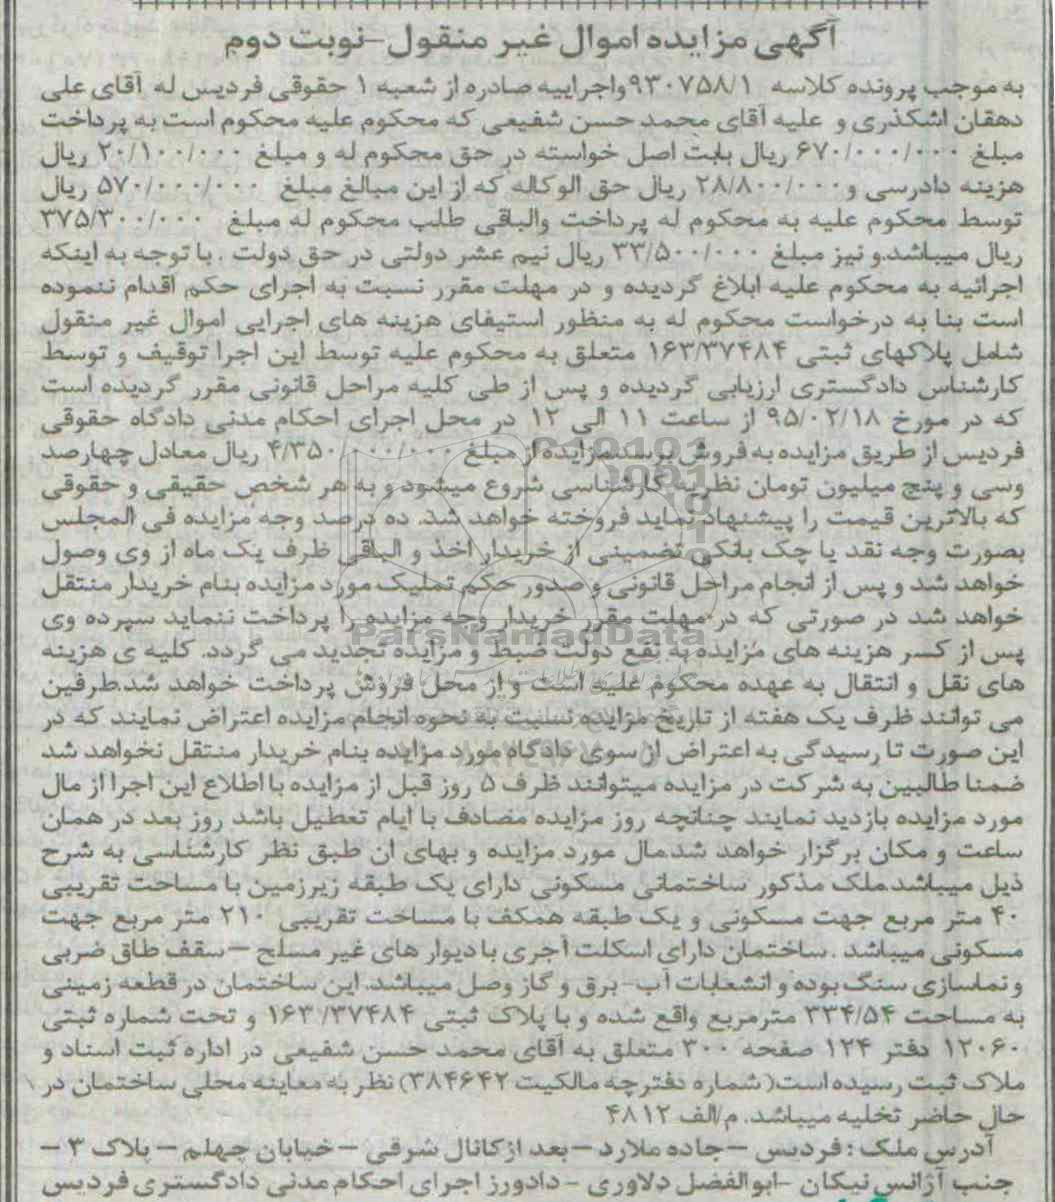 آگهی مزایده اموال غیر منقول-نوبت دوم
به موجب پرونده کلاسه ۹۳۰۷۵۸/۱ واجراییه صادره از شعبه ۱ حقوقی فردیس له آقای علی
دهقان اشکذری و علیه آقای محمد حسن شفیعی که محکوم علیه محکوم است به پرداخت
مبلغ ۶۷۰/۰۰۰/۰۰۰ ریال بابت اصل خواسته در حق محکوم له و مبلغ ۲۰/۱۰۰/۰۰۰ ریال
هزینه دادرسی و ۲۸/۸۰۰/۰۰۰ ریال حق الوکاله که از این مبالغ مبلغ ۵۷۰/۰۰۰/۰۰۰ ریال
توسط محکوم علیه به محکوم له پرداخت والباقی طلب محکوم له مبلغ ۳۷۵/۳۰۰/۰۰۰
ریال میباشد.و نیز مبلغ ۳۳/۵۰۰/۰۰۰ ریال نیم عشر دولتی در حق دولت . با توجه به اینکه
اجرائیه به محکوم علیه ابلاغ گردیده و در مهلت مقرر نسبت به اجرای حکم اقدام ننموده
است بنا به درخواست محکوم له به منظور استیفای هزینه های اجرایی اموال غیر منقول
شامل پلاکهای ثبتی ۱۶۳/۳۷۴۸۴ متعلق به محکوم علیه توسط این اجرا توقیف و توسط
کارشناس دادگستری ارزیابی گردیده و پس از طی کلیه مراحل قانونی مقرر گردیده است
که در مورخ ۹۵/۰۲/۱۸ از ساعت ۱۱ الی ۱۲ در محل اجرای احکام مدنی دادگاه حقوقی
فردیس از طریق مزایده به فروش برسد.مزایده از مبلغ ۴/۳۵۰/۰۰۰/۰۰۰ ریال معادل چهارصد
وسی و پنج میلیون تومان نظریه کارشناسی شروع میشود و به هر شخص حقیقی و حقوقی
که بالاترین قیمت را پیشنهاد نماید فروخته خواهد شد. ده درصد وجه مزایده فی المجلس
بصورت وجه نقد یا چک بانکی تضمینی از خریدار اخذ و الباقی ظرف یک ماه از وی وصول
خواهد شد و پس از انجام مراحل قانونی و صدور حکم تملیک مورد مزایده بنام خریدار منتقل
خواهد شد در صورتی که در مهلت مقرر خریدار وجه مزایده را پرداخت ننماید سپرده وی
پس از کسر هزینه های مزایده به نفع دولت ضبط و مزایده تجدید می گردد. کلیه ی هزینه
های نقل و انتقال به عهده محکوم علیه است و از محل فروش پرداخت خواهد شد.طرفین
می توانند ظرف یک هفته از تاریخ مزایده نسبت به نحوه انجام مزایده اعتراض نمایند که در
این صورت تا رسیدگی به اعتراض از سوی دادگاه مورد مزایده بنام خریدار منتقل نخواهد شد
ضمنا طالبین به شرکت در مزایده میتوانند ظرف ۵ روز قبل از مزایده با اطلاع این اجرا از مال
مورد مزایده بازدید نمایند چنانچه روز مزایده مصادف با ایام تعطیل باشد روز بعد در همان
ساعت و مکان برگزار خواهد شد.مال مورد مزایده و بهای ان طبق نظر کارشناسی به شرح
ذیل میباشد.ملک مذکور ساختمانی مسکونی دارای یک طبقه زیرزمین با مساحت تقریبی
۴۰ متر مربع جهت مسکونی و یک طبقه همکف با مساحت تقریبی ۲۱۰ متر مربع جهت
مسکونی میباشد . ساختمان دارای اسکلت آجری با دیوار های غیر مسلح – سقف طاق ضربی
و نماسازی سنگ بوده و انشعابات آب- برق و گاز وصل میباشد. این ساختمان در قطعه زمینی
به مساحت ۳۳۴/۵۴ مترمربع واقع شده و با پلاک ثبتی ۱۶۳/۳۷۴۸۴ و تحت شماره ثبتی
۱۲۰۶۰ دفتر ۱۲۴ صفحه ۳۰۰ متعلق به آقای محمد حسن شفیعی در اداره ثبت اسناد و
ملاک ثبت رسیده است( شماره دفترچه مالکیت ۳۸۴۶۴۲) نظر به معاینه محلی ساختمان در
حال حاضر تخلیه میباشد. م/الف ۴۸۱۲
آدرس ملک : فردیس – جاده ملارد – بعد ازکانال شرقی – خیابان چهلم – پلاک ۳ –
جنب آژانس نیکان -ابوالفضل دلاوری - دادورز اجرای احکام مدنی دادگستری فردیس
ParsNamadData